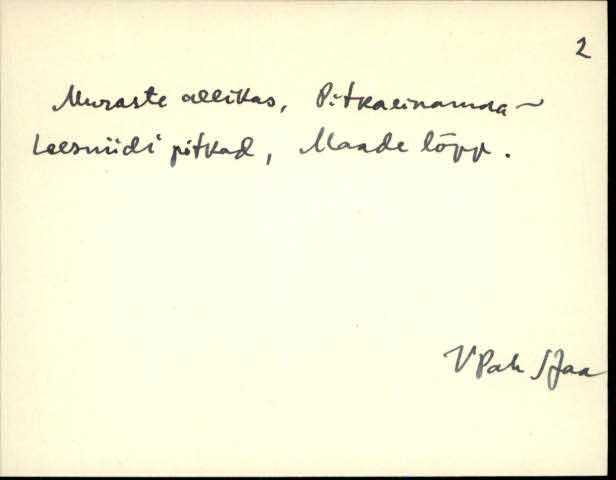 2
Muraste allikas, Pitkaeinamaa ~
Leesniidi pitkad, Maade lõpp.
VPall SJaa